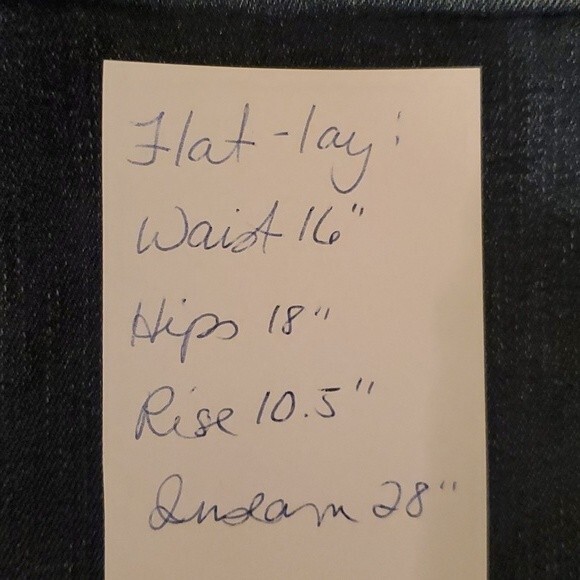 Flat-lay:
Waist 16"
Hips 18"
Rise 10.5"
Inseam 28"